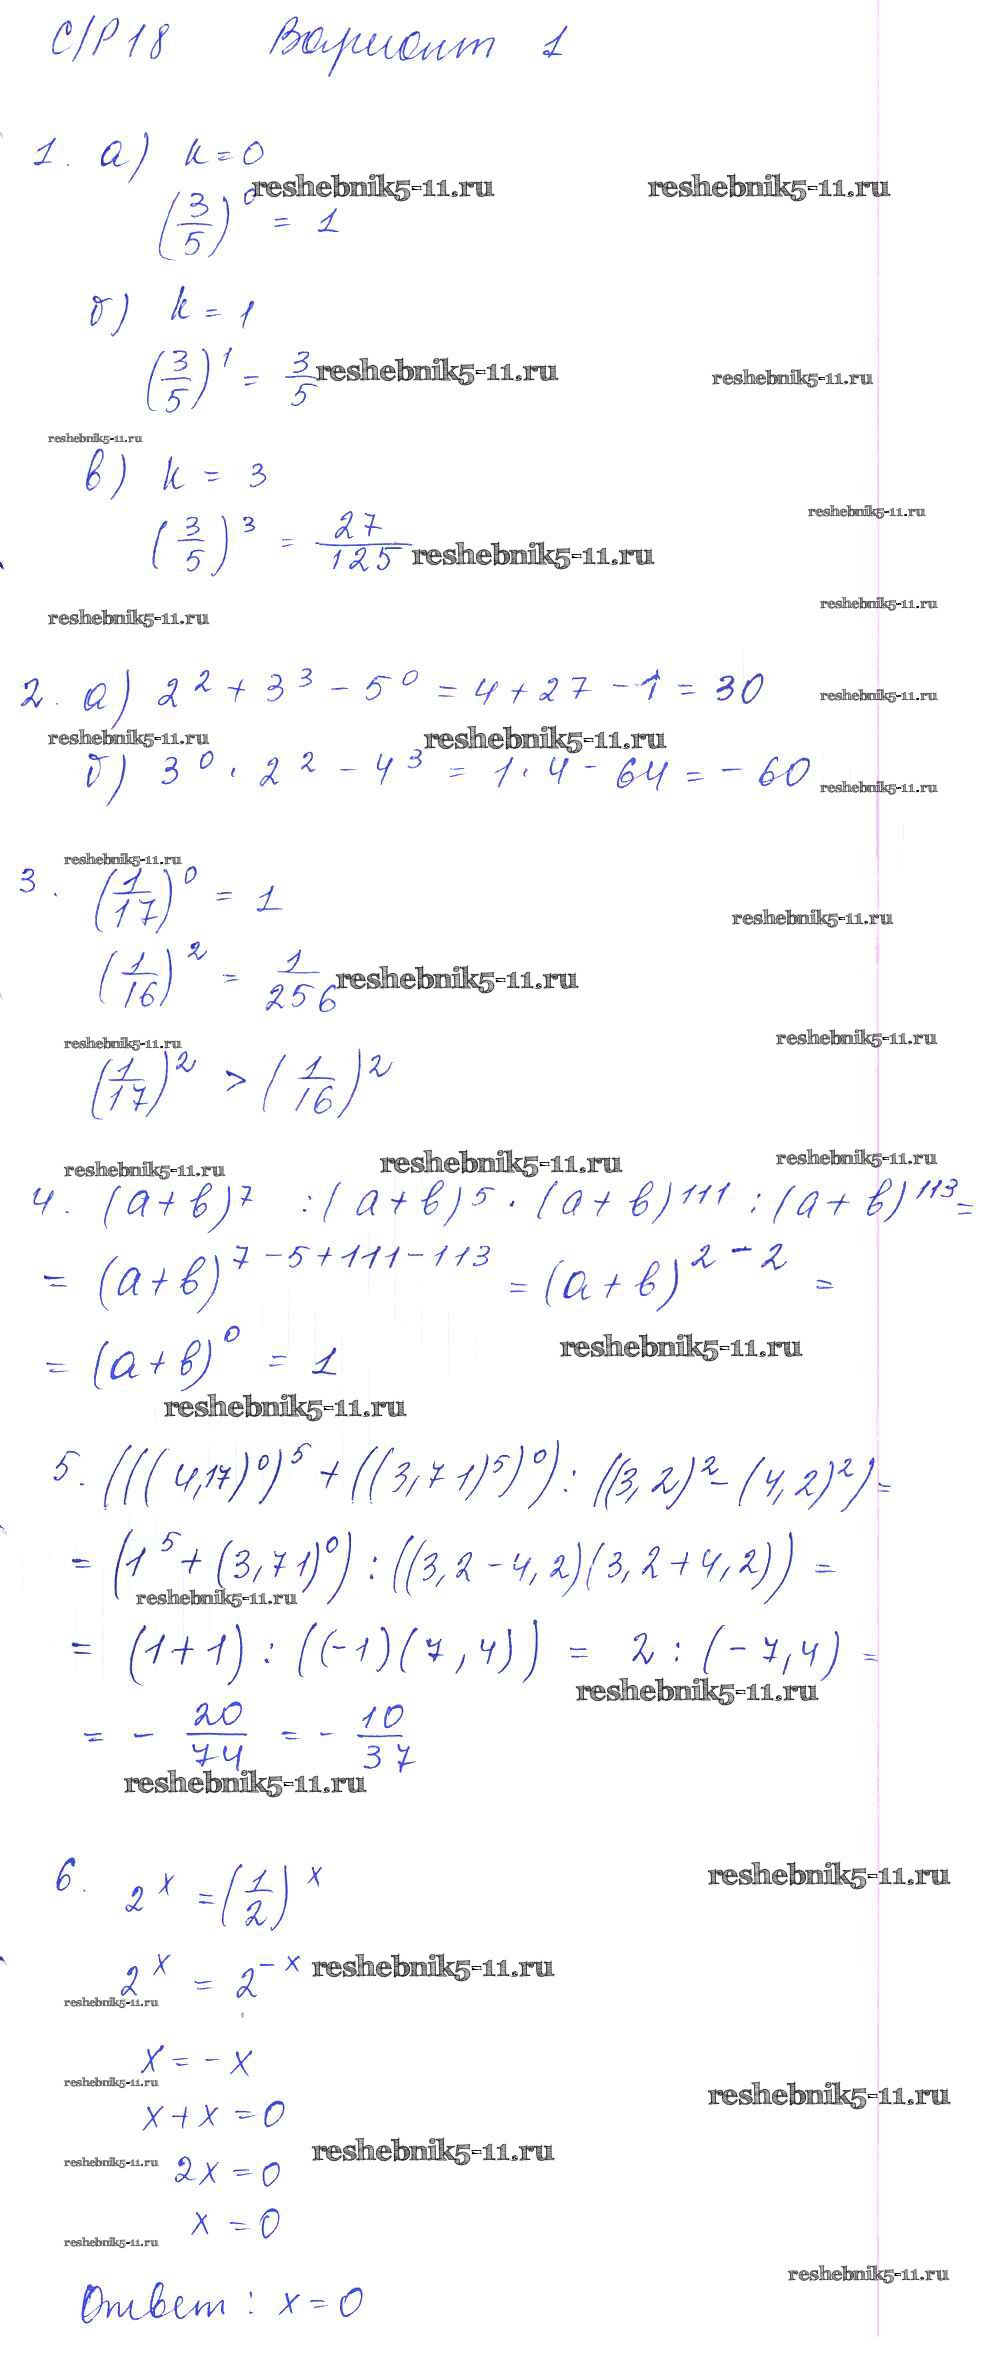 С/Р 18 Вариант 1
1. а) k = 0
reshebnik5-11.ru reshebnik5-11.ru
(3/5)^0 = 1
б) k = 1
(3/5)^1 = 3/5 reshebnik5-11.ru reshebnik5-11.ru
reshebnik5-11.ru
в) k = 3
reshebnik5-11.ru
(3/5)^3 = 27/125 reshebnik5-11.ru
reshebnik5-11.ru reshebnik5-11.ru
2. а) 2^2 + 3^3 - 5^0 = 4 + 27 - 1 = 30 reshebnik5-11.ru
reshebnik5-11.ru reshebnik5-11.ru
б) 3^0 · 2^2 - 4^3 = 1 · 4 - 64 = - 60 reshebnik5-11.ru
reshebnik5-11.ru
3. (1/17)^0 = 1
reshebnik5-11.ru
(1/16)^2 = 1/256 reshebnik5-11.ru
reshebnik5-11.ru reshebnik5-11.ru
(1/17)^2 > (1/16)^2
reshebnik5-11.ru reshebnik5-11.ru reshebnik5-11.ru
4. (a+b)^7 : (a+b)^5 · (a+b)^111 : (a+b)^113 =
= (a+b)^(7-5+111-113) = (a+b)^(2-2) =
= (a+b)^0 = 1 reshebnik5-11.ru
reshebnik5-11.ru
5. (((4,17)^0)^5 + ((3,71)^5)^0) : ((3,2)^2 - (4,2)^2) =
= (1^5 + (3,71)^0) : ((3,2 - 4,2)(3,2 + 4,2)) =
reshebnik5-11.ru
= (1+1) : ((-1)(7,4)) = 2 : (-7,4) =
reshebnik5-11.ru
= - 20/74 = - 10/37
reshebnik5-11.ru
6. 2^x = (1/2)^x reshebnik5-11.ru
2^x = 2^-x reshebnik5-11.ru
reshebnik5-11.ru
x = - x
reshebnik5-11.ru reshebnik5-11.ru
x + x = 0
reshebnik5-11.ru
reshebnik5-11.ru 2x = 0
x = 0
reshebnik5-11.ru
reshebnik5-11.ru
Ответ: x = 0